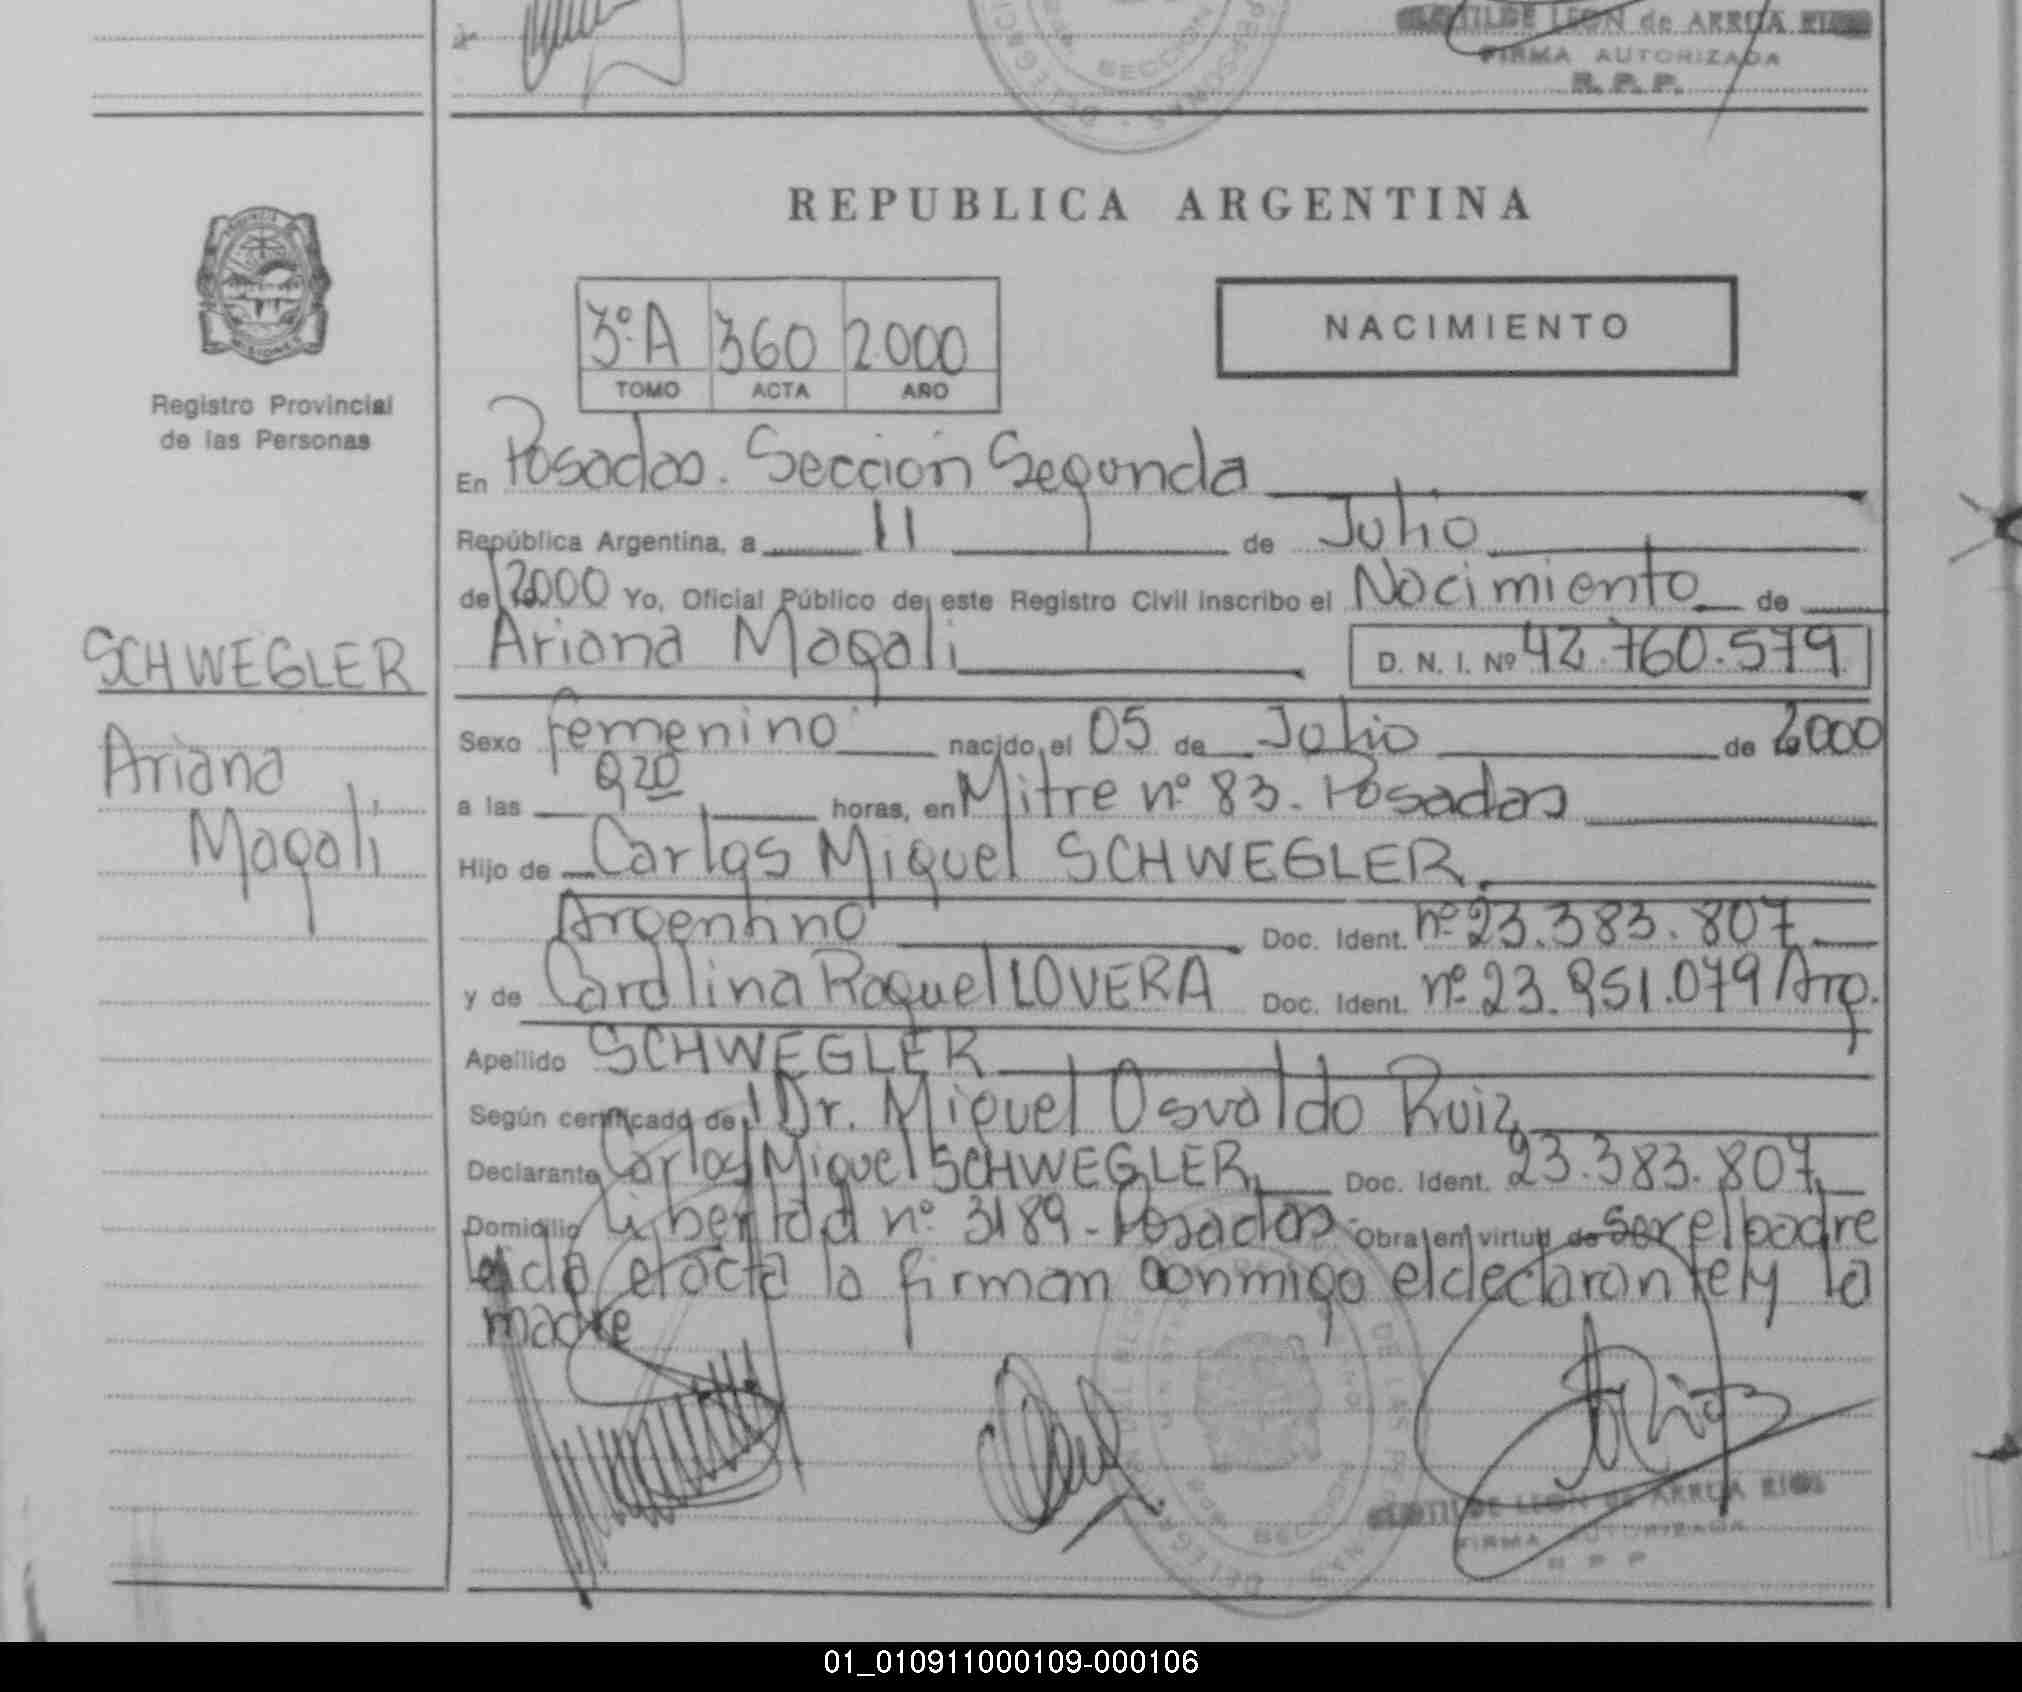 SECCION
DELEGACI
PERSONAS
CLOTILDE LEON de ARRUA RIOS
FIRMA AUTORIZADA
R. P. P.
REPUBLICA ARGENTINA
PROVINCIA
MISIONES
Registro Provincial
de las Personas
3º A 360 2.000
TOMO ACTA AÑO
NACIMIENTO
En Posadas. Sección Segunda
República Argentina, a 11 de Julio
de 2000 Yo, Oficial Público de este Registro Civil inscribo el Nacimiento de
Ariana Magali D. N. I. Nº 42.760.579
SCHWEGLER
Ariana
Magali
Sexo femenino nacido el 05 de Julio de 2000
a las 9 20 horas, en Mitre nº 83. Posadas
Hijo de Carlos Miguel SCHWEGLER
Argentino Doc. Ident. nº 23.383.807
y de Carolina Raquel LOVERA Doc. Ident. nº 23.951.079 Arg.
Apellido SCHWEGLER
Según certificado de Dr. Miguel Osvaldo Ruiz
Declarante Carlos Miguel SCHWEGLER Doc. Ident. 23.383.807
Domicilio Libertad nº 3189 - Posadas Obra en virtud de ser el padre
leida el acta la firman conmigo el declarante y la
madre
CLOTILDE LEON de ARRUA RIOS
FIRMA AUTORIZADA
R P P
01_010911000109-000106